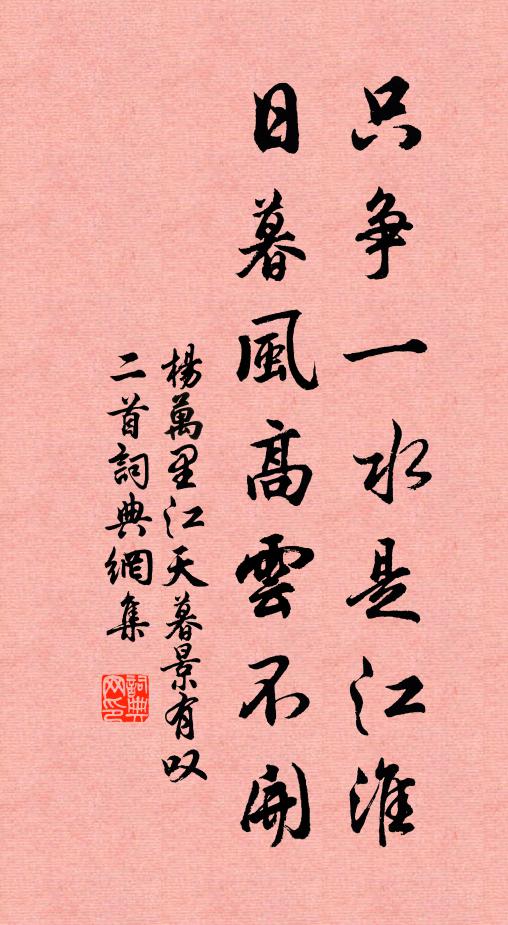 只争一水是江淮
日暮風高雲不開
楊萬里江天暮景有叹
二首詞典網集
詞典
网印